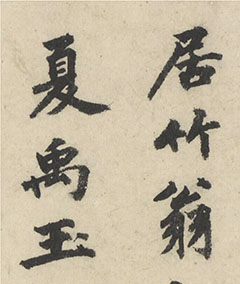 居竹翁
夏禹玉